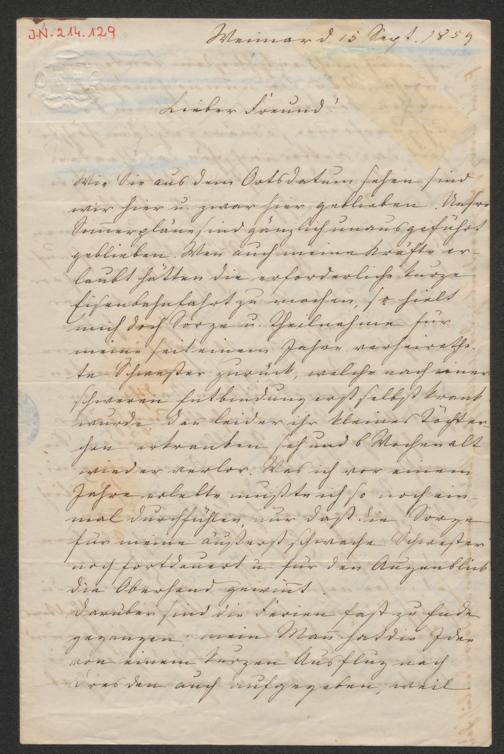 J.N. 214.129
Weimar d. 15 Sept. 1859
Lieber Freund!
Wie Sie aus dem Ortsdatum sehen sind
wir hier u. zwar hier geblieben. Unsre
Sommerpläne sind gänzlich unausgeführt
geblieben. Wenn auch meine Kräfte er-
laubt hätten die erforderliche kurze
Eisenbahnfahrt zu machen, so hielt
mich doch Sorge u. Theilnahme für
meine seit einem Jahre verheirathe-
te Schwester zurück, welche nach einer
schweren Entbindung erst selbst krank
wurde dann leider ihr kleines Töchter
chen erkranken sah und 6 Wochen alt
wieder verlor. Was ich vor einem
Jahre erlebte mußte ich so noch ein-
mal durchfühlen, nur daß die Sorge
für meine äußerst schwache Schwester
noch fortdauert u. für den Augenblick
die Oberhand gewinnt.
Darüber sind die Ferien fast zu Ende
gegangen; mein Mann hat die Idee
von einem kurzen Ausflug nach
Dresden auch aufgegeben, weil